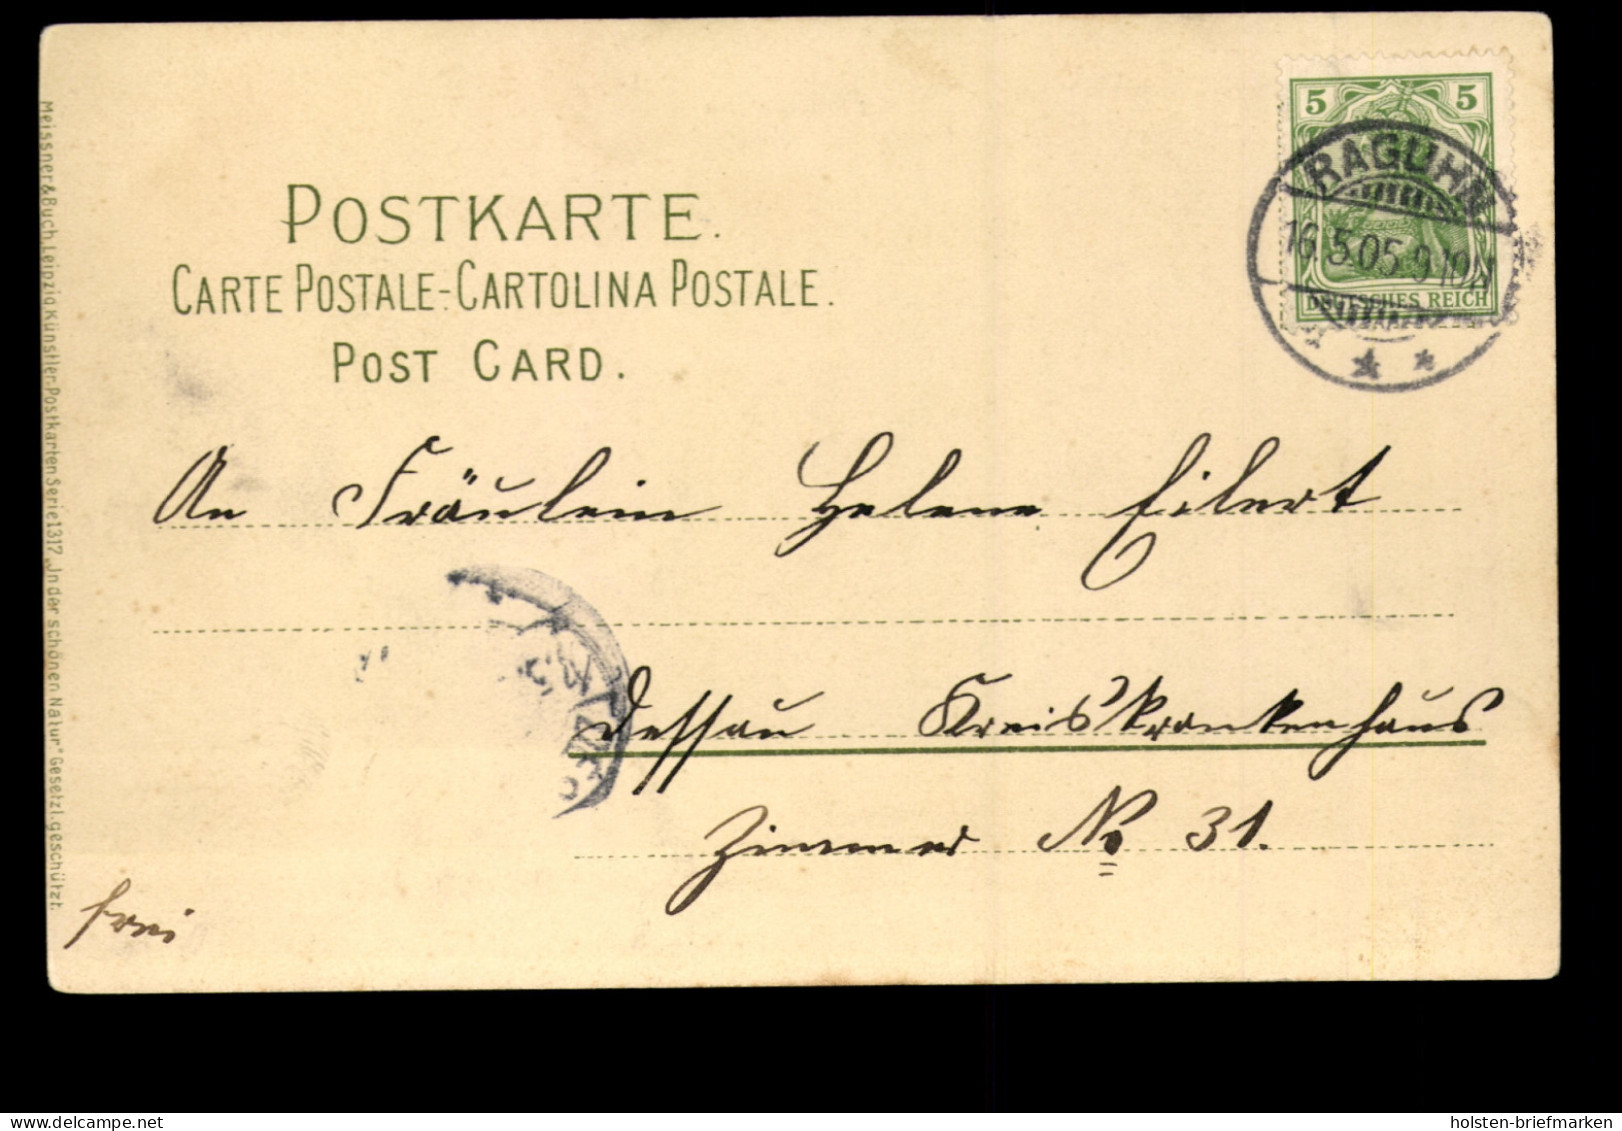 POSTKARTE.
CARTE POSTALE-CARTOLINA POSTALE.
POST CARD.
5 5
DEUTSCHES REICH
RAGUHN
16.5.05.9-10N
An Fräulein Helene Eilert
Dessau Kreiskrankenhaus
Zimmer No 31.
frei
Meissner & Buch, Leipzig, Künstler-Postkarten Serie 1317 „In der schönen Natur" Gesetzl. geschützt.
delcampe.net
holsten-briefmarken